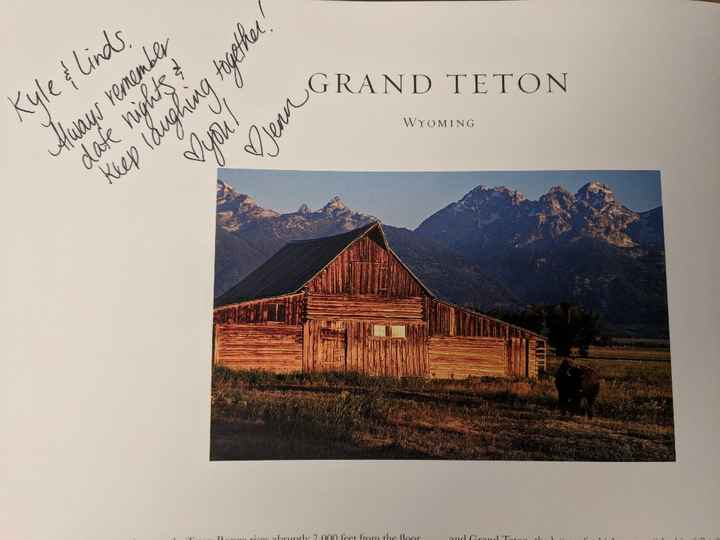 Kyle & Linds.
Always remember
date nights &
keep laughing together!
♡ you!
♡ Jenn
GRAND TETON
WYOMING
Teton Range rises abruptly 7,000 feet from the floor
and Grand Teton, the